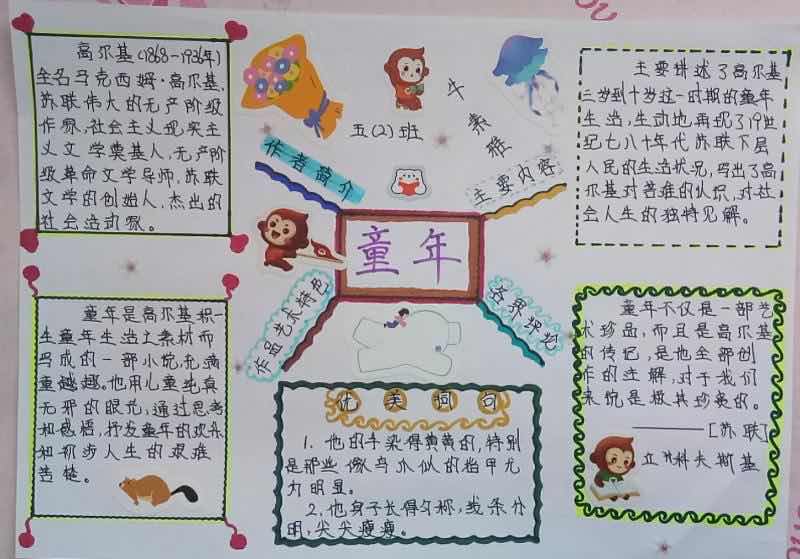 高尔基(1868-1936年)
全名马克西姆·高尔基,
苏联伟大的无产阶级
作家,社会主义现实主
义文学奠基人,无产阶
级革命文学导师,苏联
文学的创始人,杰出的
社会活动家。
五(2)班
牛素雅
作者简介
主要内容
主要讲述了高尔基
三岁到十岁这一时期的童年
生活,生动地再现了19世
纪七八十年代苏联下层
人民的生活状况,写出了高
尔基对苦难的认识,对社
会人生的独特见解。
童年
作品艺术特色
各界评论
童年是高尔基积一
生童年生活工素材而
写成的一部小说,充满
童趣趣。他用儿童纯真
无邪的眼光,通过思考
和感悟,抒发童年的欢乐
和初步人生的艰难
苦涩。
优美词句
1.他的手染得黄黄的,特别
是那些像鸟爪似的指甲尤
为明显。
2.他身子长得匀称,线条分
明,尖尖瘦瘦。
童年不仅是一部艺
术珍品,而且是高尔基
的传记,是他全部创
作的注解,对于我们
来说是极其珍贵的。
——[苏联]
科夫斯基